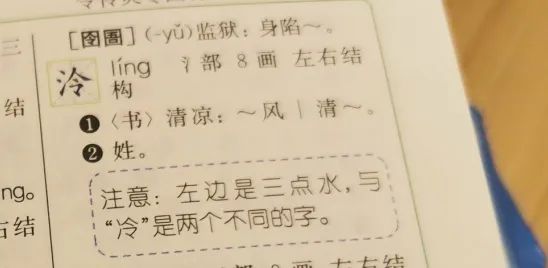 [囹圄] (-yǔ) 监狱：身陷～。
泠 líng 氵部 8画 左右结
构
❶〈书〉清凉：～风｜清～。
❷ 姓。
注意：左边是三点水，与
“冷”是两个不同的字。
三
结
ng。
右结
部 8画 左右结